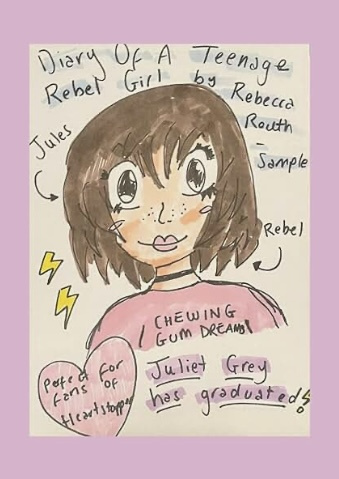 Diary Of A Teenage
Rebel Girl by Rebecca
Routh
-
Sample
Jules
Rebel
CHEWING
GUM DREAMS
Perfect for
fans of
Heartstopper
Juliet Grey
has graduated!